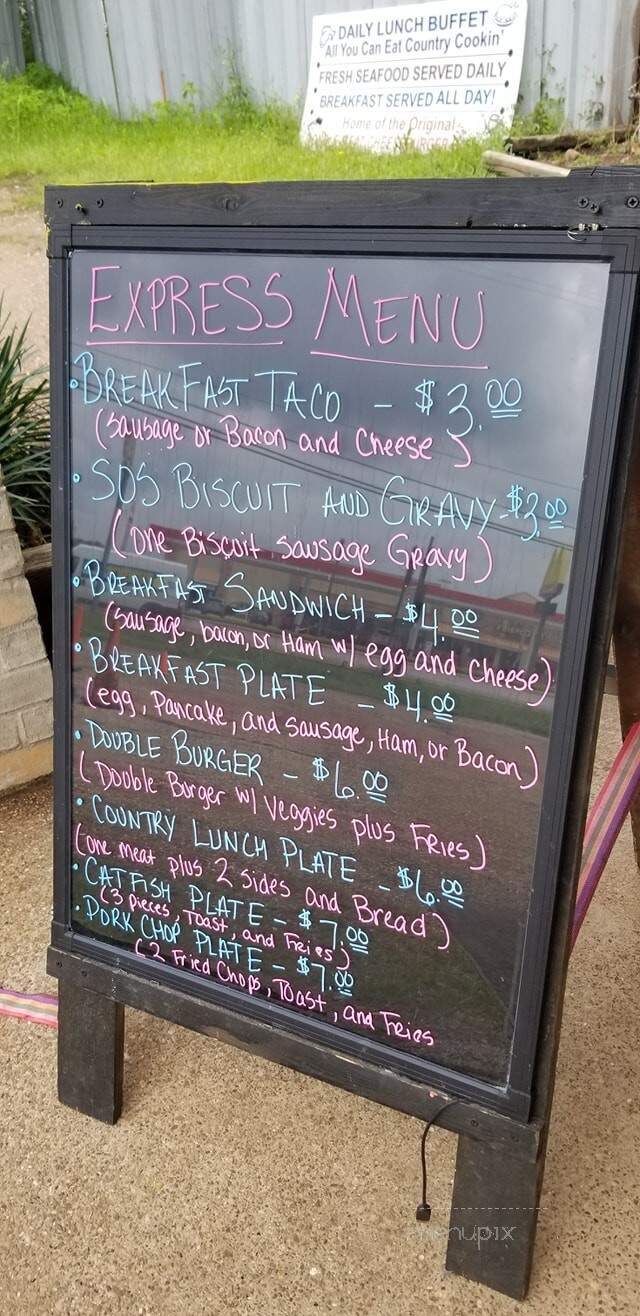 DAILY LUNCH BUFFET
All You Can Eat Country Cookin'
FRESH SEAFOOD SERVED DAILY
BREAKFAST SERVED ALL DAY!
Home of the Original
EXPRESS MENU
• BREAKFAST TACO - $3.00
(Sausage or Bacon and Cheese)
• SOS BISCUIT AND GRAVY - $3.00
(one Biscuit, Sausage Gravy)
• BREAKFAST SANDWICH - $4.00
(sausage, bacon, or Ham w/ egg and cheese)
• BREAKFAST PLATE - $4.00
(egg, Pancake, and sausage, Ham, or Bacon)
• DOUBLE BURGER - $6.00
(Double Burger w/ Veggies plus FRies)
• COUNTRY LUNCH PLATE - $6.00
(one meat plus 2 sides and Bread)
• CATFISH PLATE - $7.00
(3 pieces, Toast, and Fries)
• PORK CHOP PLATE - $7.00
(2 Fried Chops, Toast, and Fries
menupix